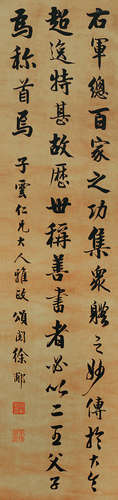 右軍總百家之功集衆軆之妙傳於大令
超逸特甚故歷世稱善書者必以二王父子
為稱首焉
子雲仁兄大人雅政 頌閣徐郙